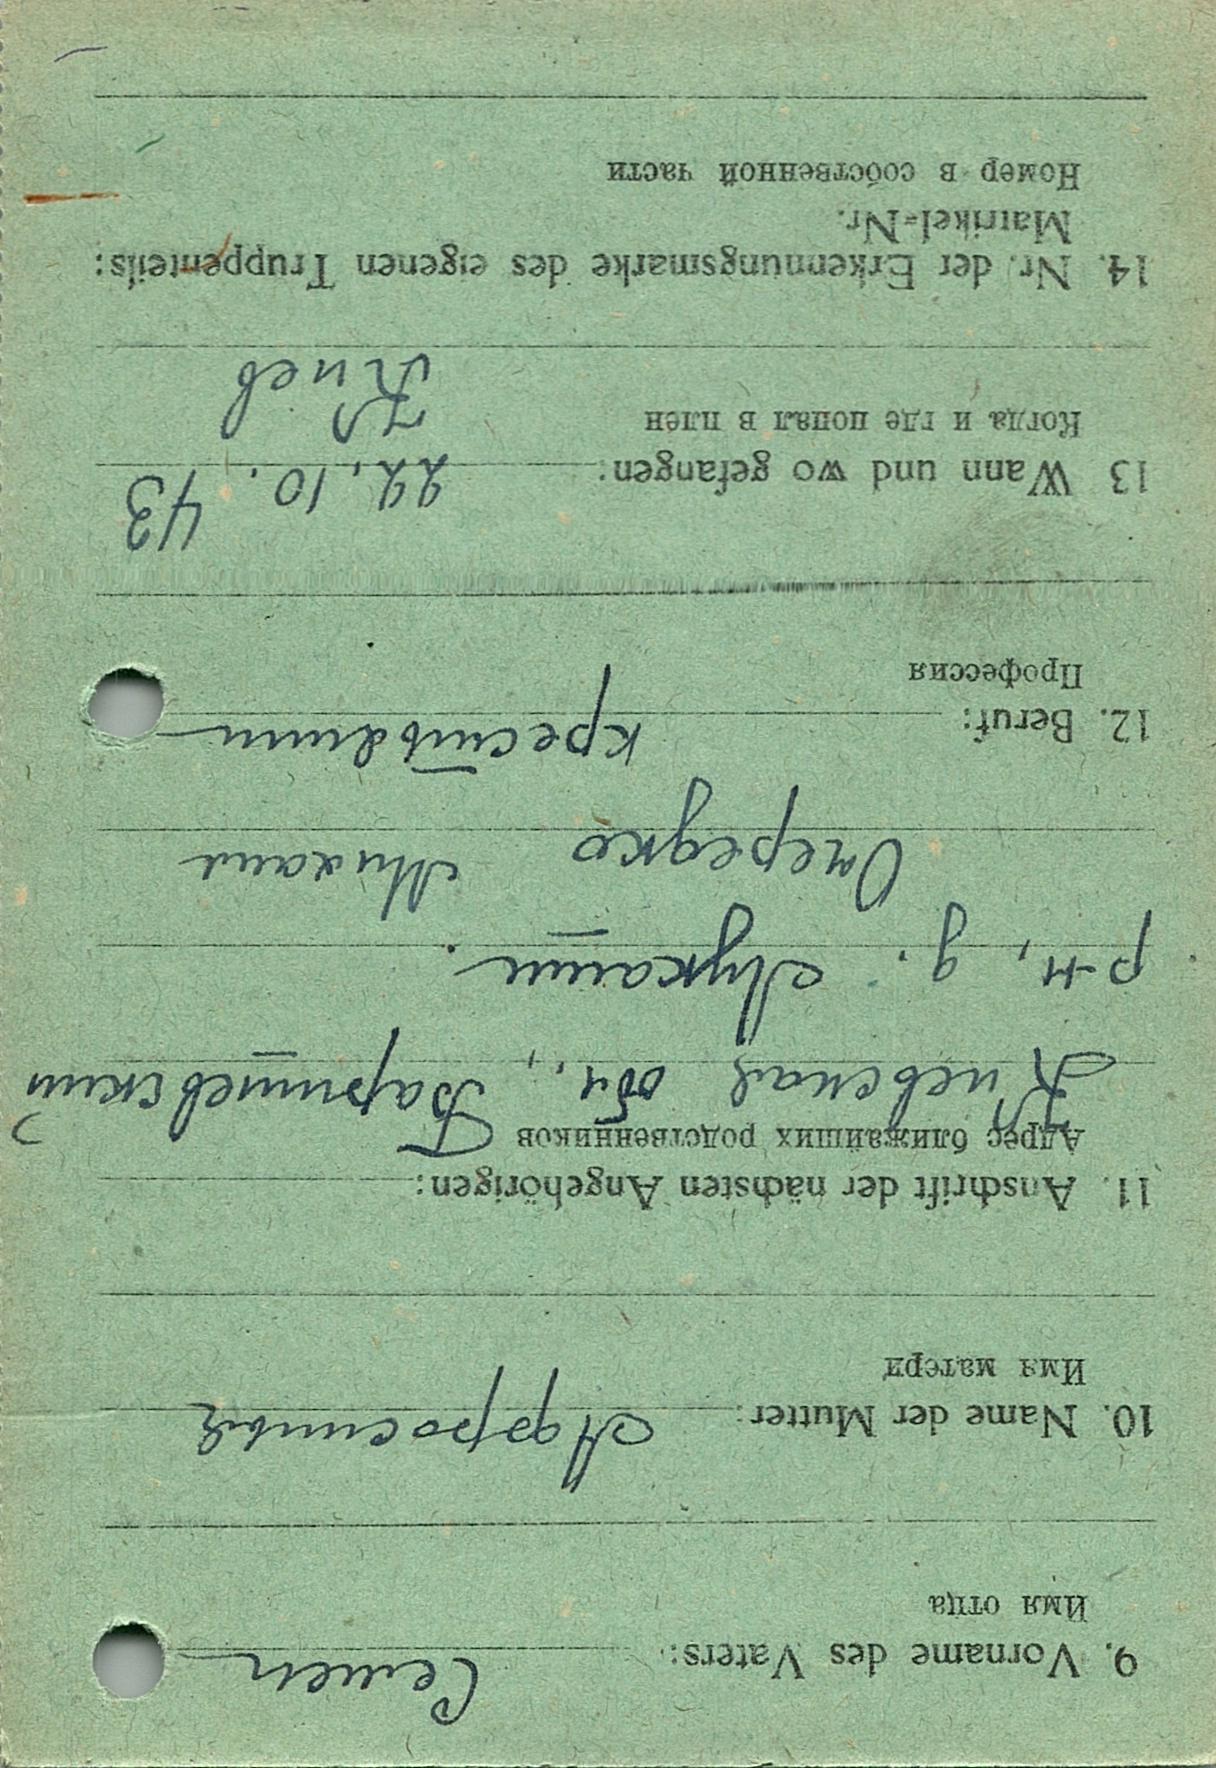 9. Vorname des Vaters: Семен
Имя отца
10. Name der Mutter: Афросинья
Имя матери
11. Anschrift der nächsten Angehörigen:
Адрес ближайших родственников
Киевская обл., Барышевский
р-н, д. Лукаши.
Очередко Михаил
12. Beruf: крестьянин
Профессия
13 Wann und wo gefangen: 22. 10. 43
Когда и где попал в плен
Киев
14. Nr. der Erkennungsmarke des eigenen Truppenteils:
Matrikel-Nr.
Номер в собственной части